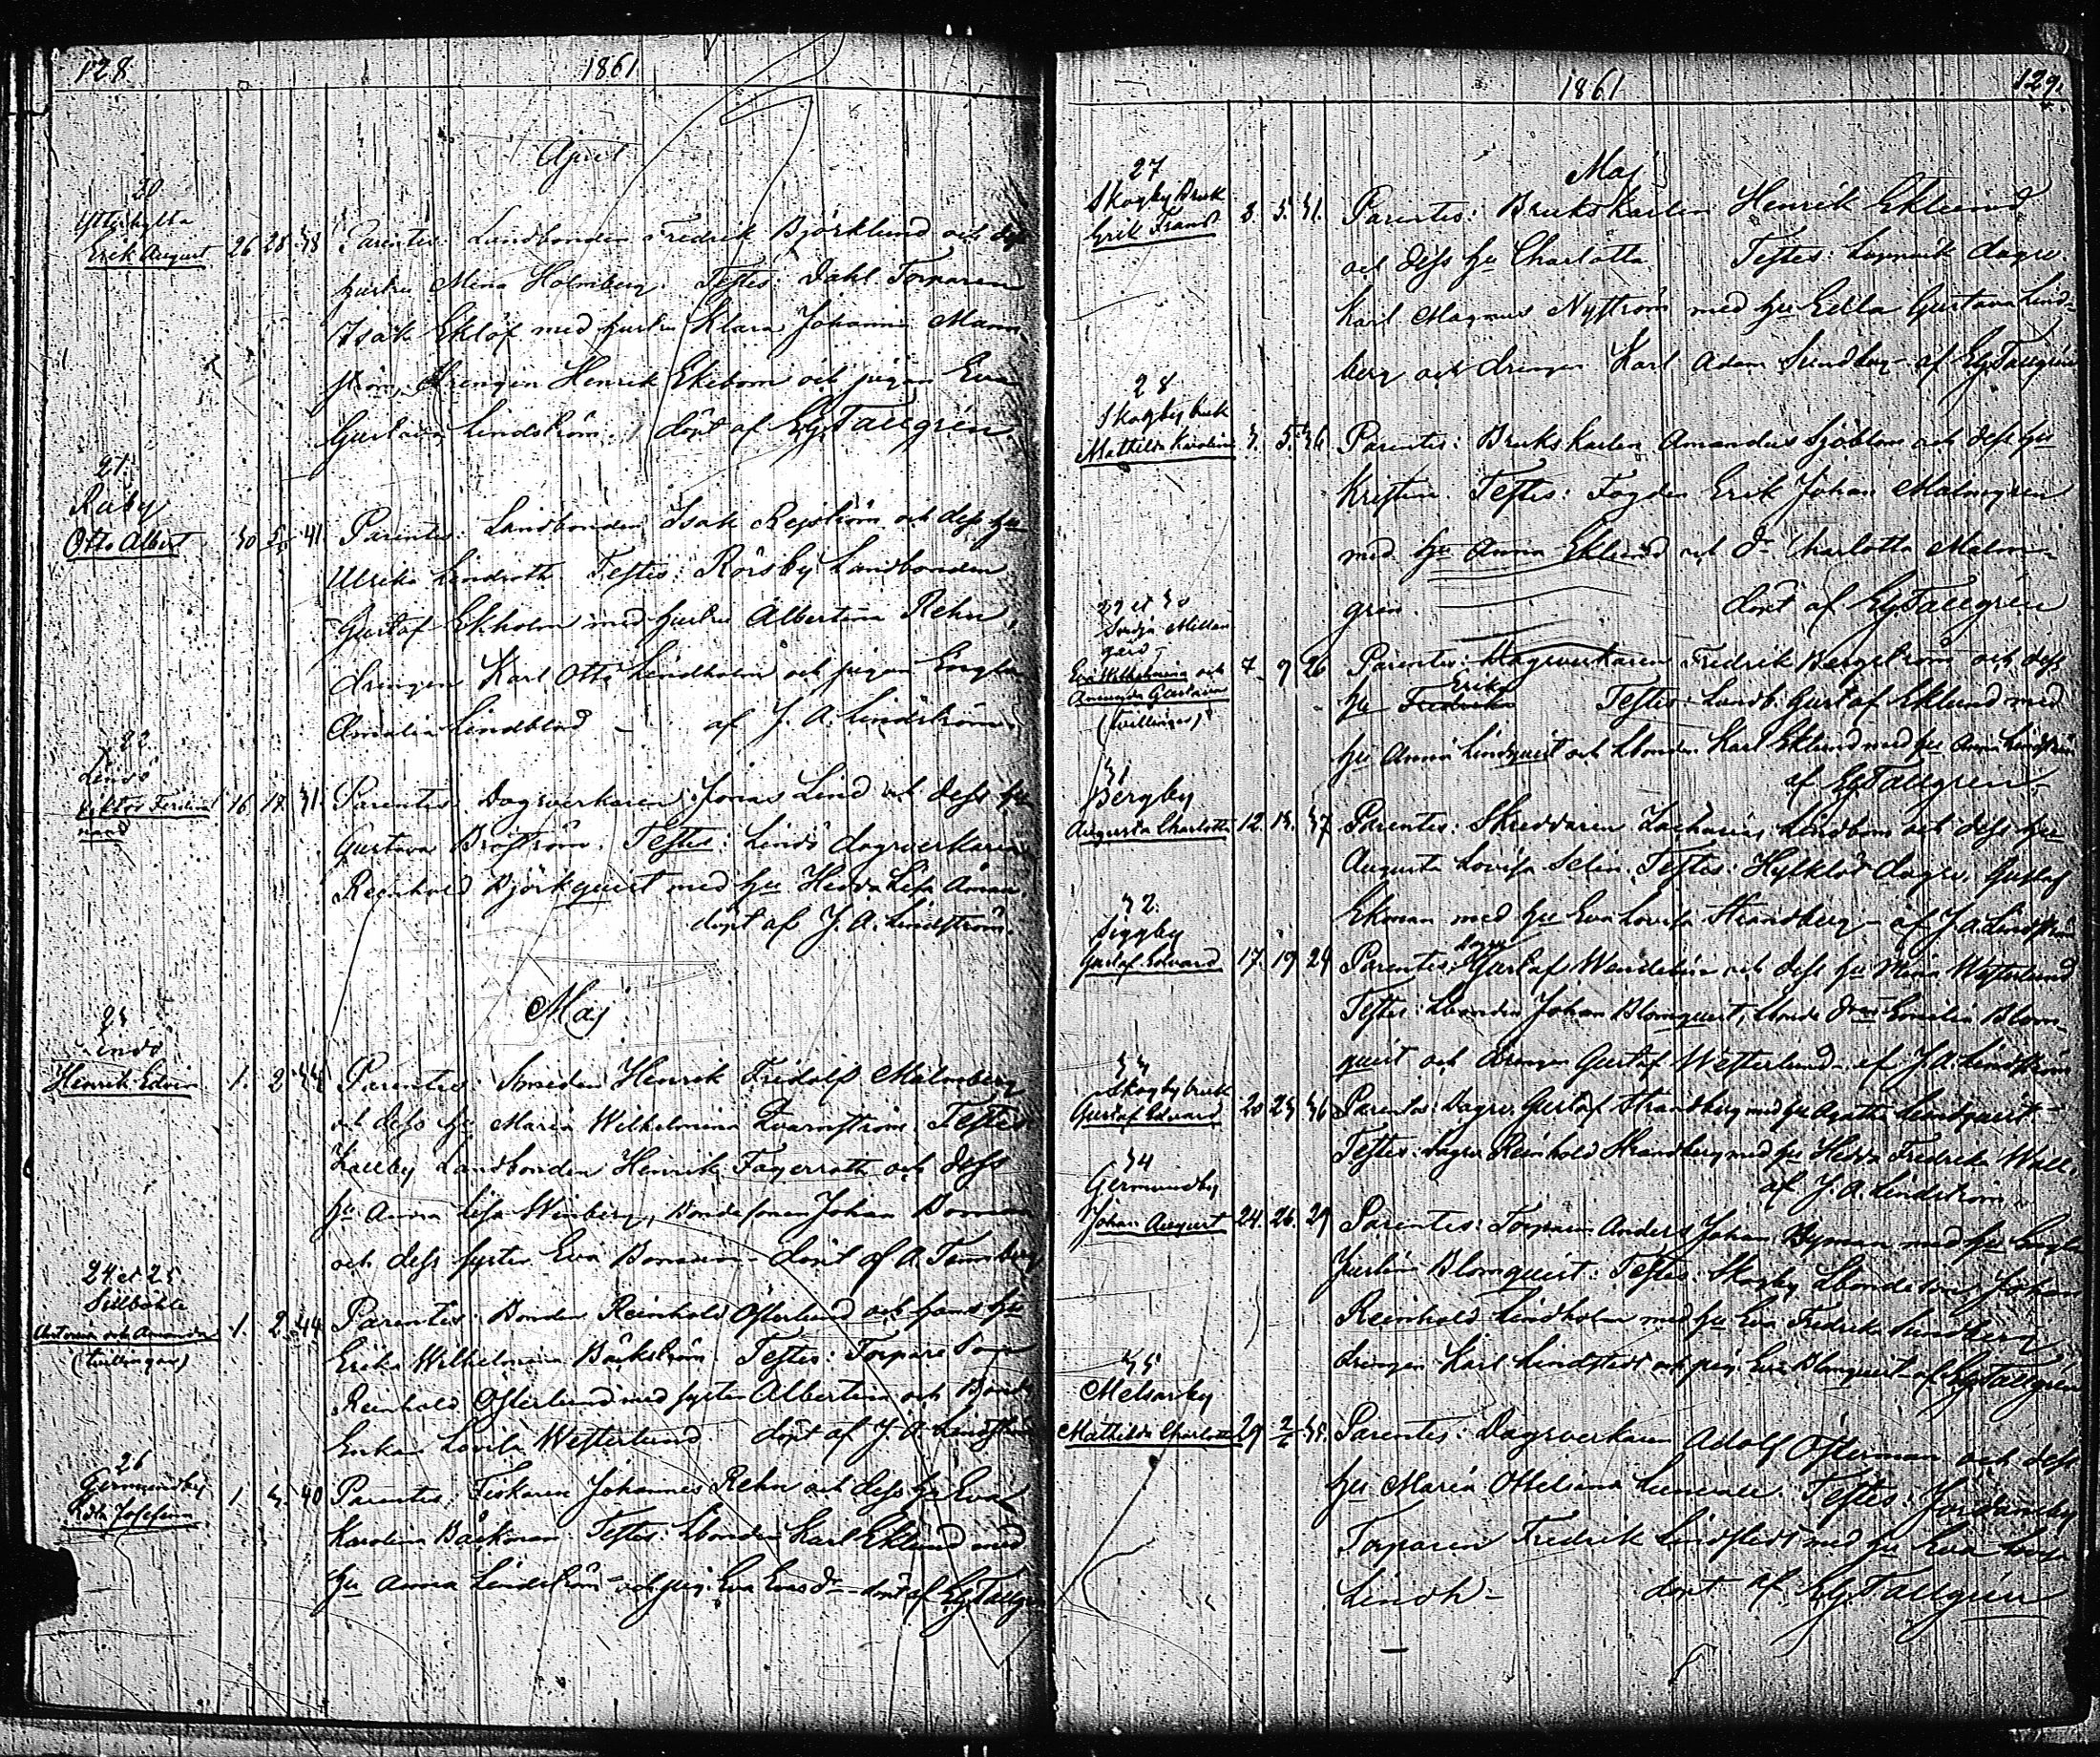 128
1861
April
20
Ytterkylta
Erik August 26 28 38 Parentes: Landbonden Fredrik Björklund och dess
hustru Mina Holmberg. Testes: Dahl Torparen
Isak Eklöf med hustru Klara Johanna Malm
ström, drengen Henrik Ekebom och pigan Eva
Gustava Lindström. döpt af EgTallgrén
21
Råby
Otto Albert 30 5/5 41 Parentes: Landbonden Isak och dess hu
Ulrika Lindroth. Testes: Rörsby Landbonden
Gustaf Ekholm med hustru Albertina Rehn,
drengen Karl Otto Lindholm och pigan Engla
Amalia Lindblad – af J. A. Lindström.
22
Lindö
Viktor Ferdinand 16 17 31 Parentes: Dagsverkaren Jonas Lind och dess hu
Gustava Boström. Testes: Lindö dagsverkaren
Reinhold Björkquist med hu Hedda Lisa Öman.
döpt af J. A. Lindström.
Maj
23
Lindö
Henrik Edvin 1. 2 34 Parentes: Smeden Henrik Fridolf Malmberg
och dess hu Maria Wilhelmina Qvarnström. Testes:
Kallby Landbonden Henrik Fagerroth och dess
hu Anna Lisa Winberg, Bondesonen Johan Boman
och dess syster Eva Boman – döpt af A. Tennberg
24 et 25
Sillböhle
Antonia och Amanda 1. 2 44 Parentes: Bonden Reinhold Österlund och hans hu
(tvillingar)
Erika Wilhelmina Bäckström. Testes: Torpare Son
Reinhold Österlund med syster Albertina och Bonde
Enkan Lovisa Westerlund döpt af J. A. Lindström
26
Germundby
Ida Josefina 1. 3. 40 Parentes: Fiskaren Johannes Rehn och dess hu Eva
Karolina Bäckman. Testes: Lbonden Karl Eklund med
hu Anna Lindström och pig. Eva Evasd – döpt af EgTallgrén
1861
129.
Maj
27
Skogby Bruk
Erik Frans 3. 5. 31. Parentes: Brukskarlen Henrik Eklund
och dess hu Charlotta Testes: dagsv.
Karl Magnus Nyström med hu Edla Gustava Lind-
berg och drengen Karl Adam Sundberg – af EgTallgrén
28
Skogby bruk
Mathilda Karolina 3. 5. 36 Parentes: Brukskarlen Amandus Sjöblom och dess hu
Kristina. Testes: Fogden Erik Johan Malmgren
med hu Anna Eklund och dr Charlotta Malm-
gren. döpt af EgTallgrén
29 et 30
Svedja Mellan
gård
Eva Wilhelmina och
Amanda Gustava
(tvillingar)
7 9 26 Parentes: Dagsverkaren Fredrik Bergström och dess
Erika
hu Fredrika Testes: Landb. Gustaf Eklund med
hu Anna Lindquist och Lbonden Karl Eklund med hu Anna Lindström
af EgTallgrén.
31
Bergby
Augusta Charlotta 12. 13. 37 Parentes: Skreddaren Zacharias Lindbom och dess hu
Augusta Lovisa Selin. Testes: dagsv. Gustaf
Ekman med hu Eva Lovisa Strandberg – af J. A. Lindström
32.
Siggby
Gustaf Edvard 17. 19 29 Parentes: dagsv Gustaf och dess hu Mina Westerlund
Testes: Lbonden Johan Blomquist, Emilia Blom-
quist och drengen Gustaf Westerlund – af J. A. Lindström
33
Skogby bruk
Gustaf Edvard 20 23 36 Parentes: Dagsv. Gustaf Strandberg med hu Agatha Lindquist. –
Testes: dagsv. Reinhold Strandberg med hu Hedda Fredrika Wall.
af J. A. Lindström
34
Germundby
Johan August 24. 26. 29 Parentes: Torparen Anders Johan Nyman med hu Engla
Justina Blomquist: Testes: Skogby Lbondeson Johan
Reinhold Lindholm med hu Eva Fredrika Lindberg
drengen Karl Lindstedt och pig. Eva Blomquist – af EgTallgrén
35
Melsarby
Mathilda Charlotta 29 2/6 35. Parentes: Dagsverkaren Adolf Österman och dess
hu Maria Ottiliana Testes:
Torparen Fredrik Lindstedt med hu Eva Lovisa
Lindh – döpt af EgTallgrén